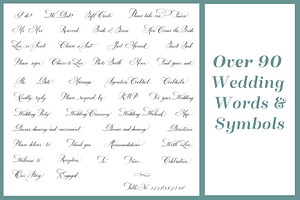 I do! We Did! Gift Cards Please take one Swoon
Mr. Mrs. Reserved Bride & Groom Here Comes the Bride
Love is Sweet Choose a Seat Just Married Sweet Seat
Please sign Cheers to Love Photo Booth Menu Find your seat
The Date Message Signature Cocktails Cocktails
Kindly reply Please respond by RSVP For your Wedding
Wedding Party Wedding Ceremony Wedding Weekend
Dinner dancing and merriment Dinner and dancing Directions
Please deliver to Thank you Accommodations With Love
Welcome to Reception To From Celebration
Our Story Engaged
Table No. 1234567890
Over 90
Wedding
Words &
Symbols